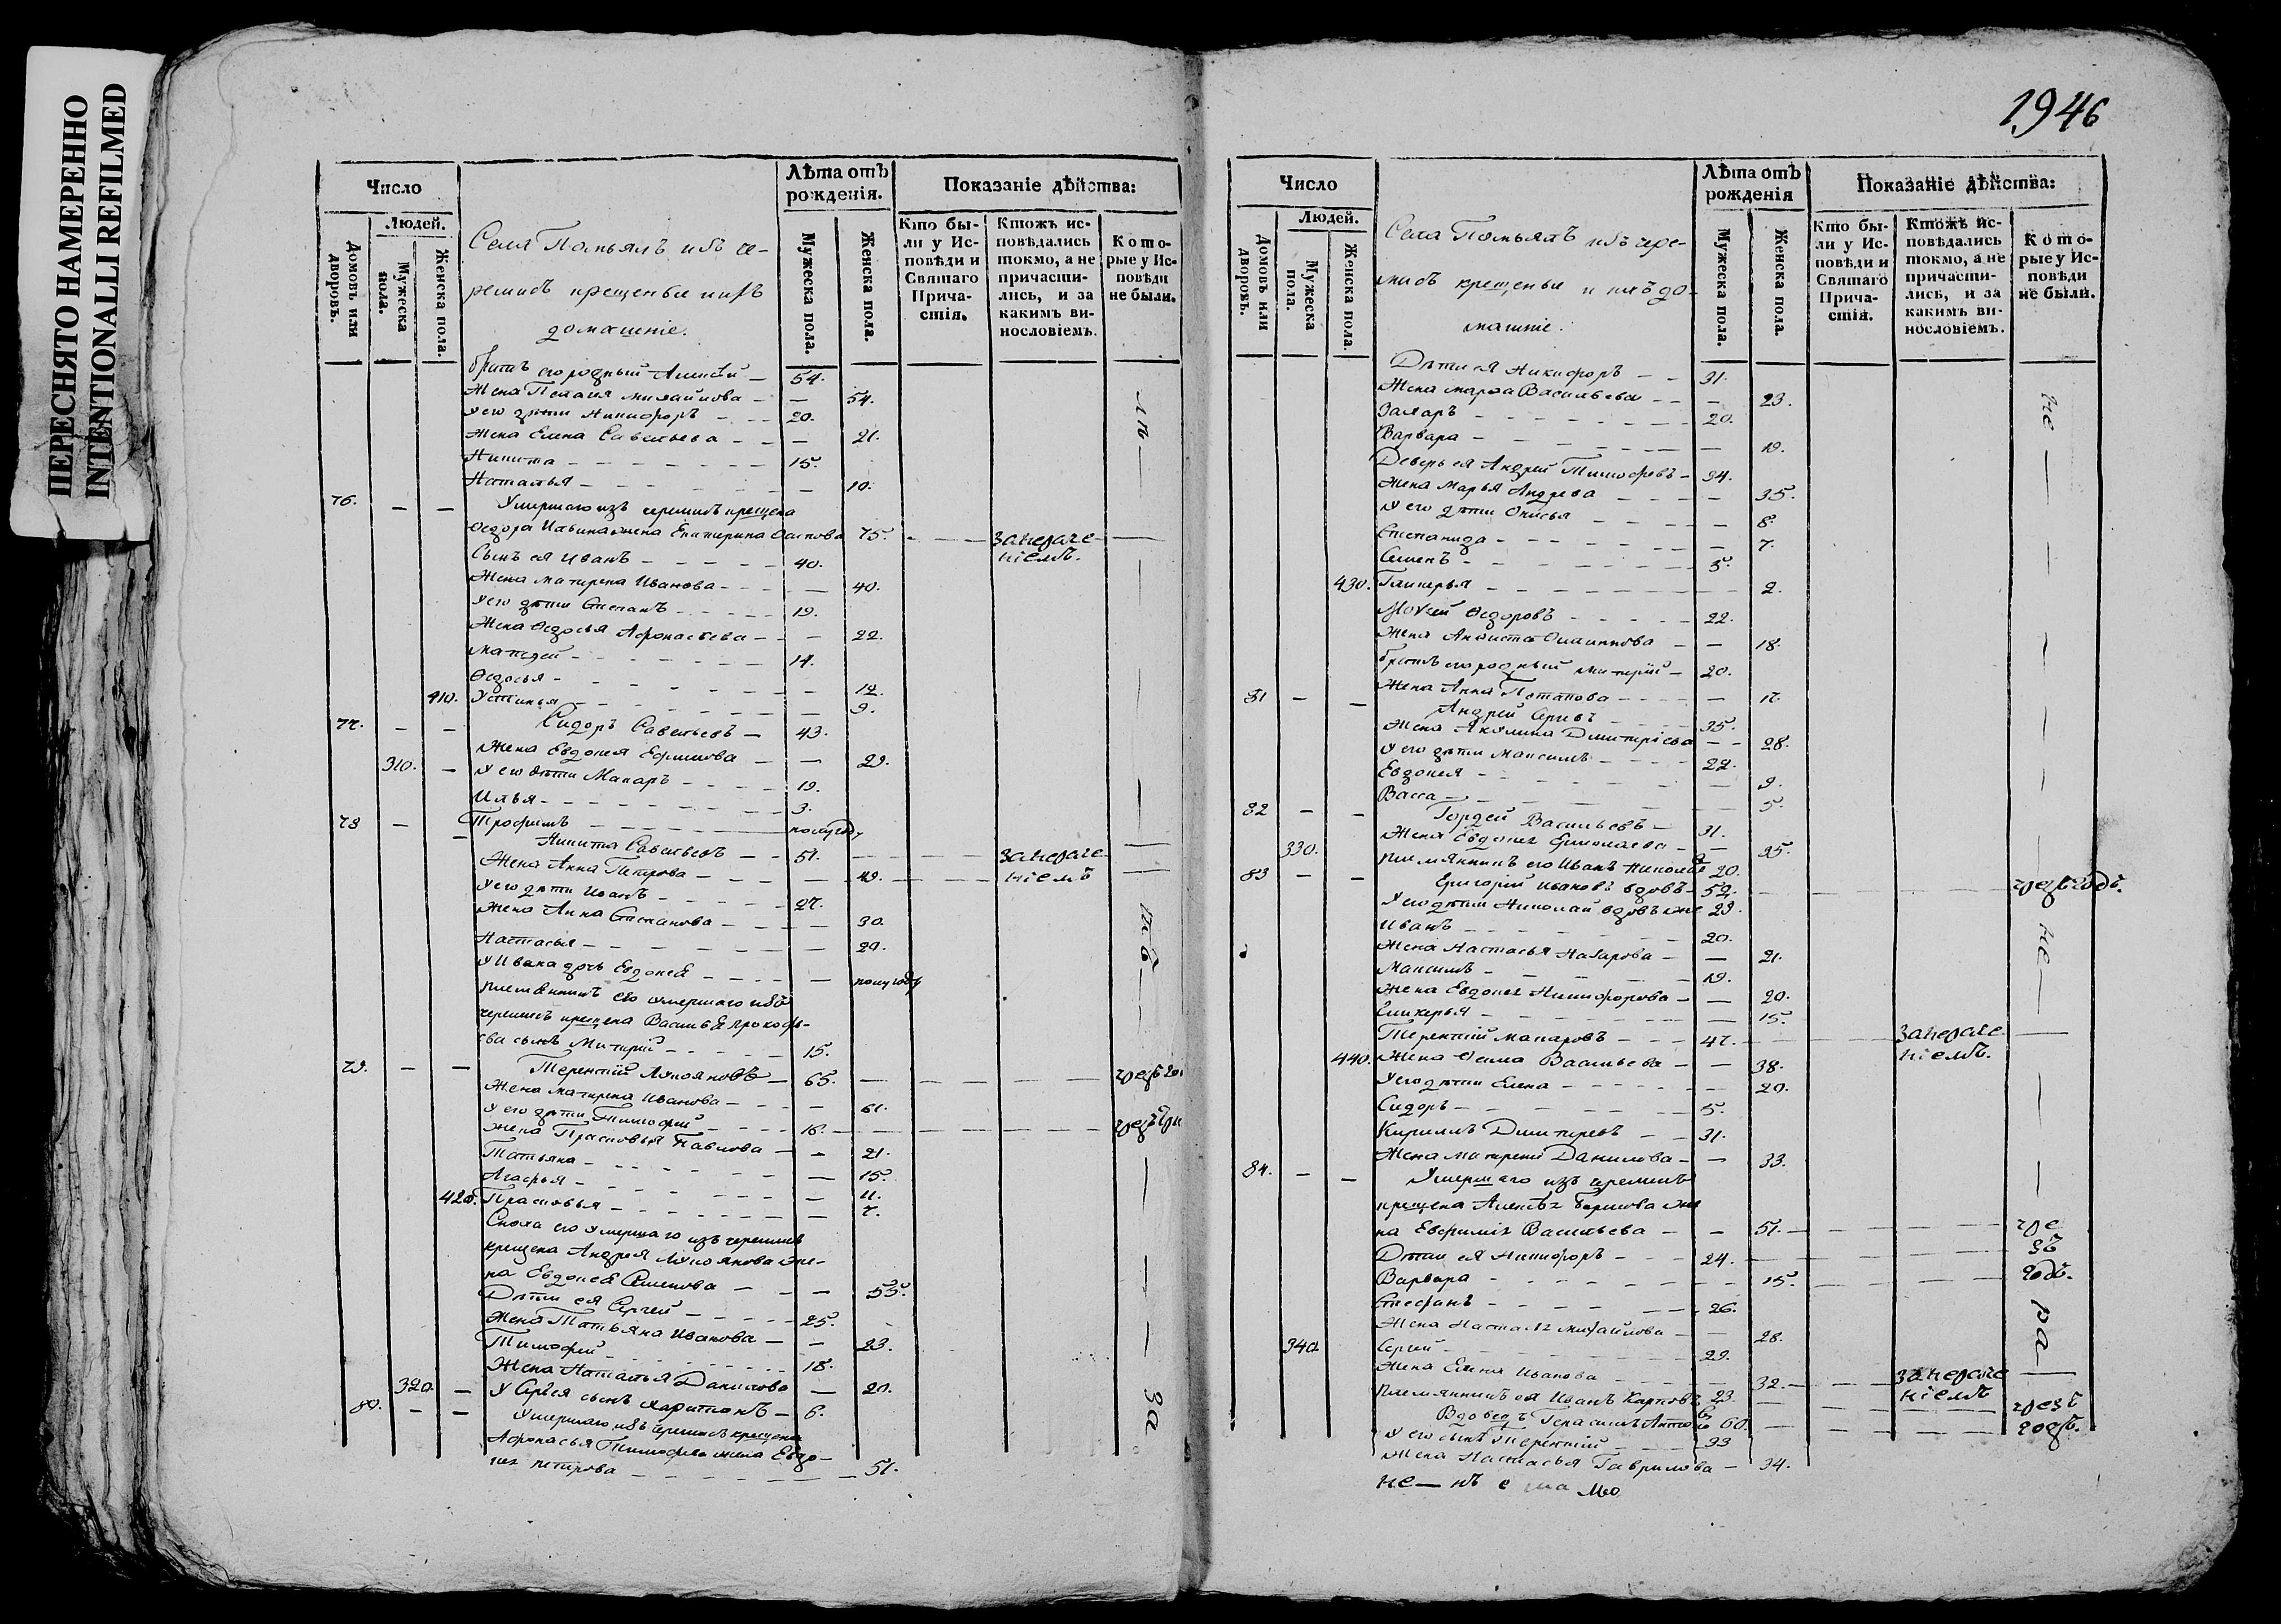 ПЕРЕСНЯТО НАМЕРЕННО
INTENTIONALLI REFILMED
Число
Людей.
Домовъ или дворовъ.
Мужеска пола.
Женска пола.
Села Помьялъ изъ че-
ремисъ крещеные и ихъ
домашніе.
Лѣта отъ рожденія.
Мужеска пола.
Женска пола.
Показаніе дѣйства:
Кто бы-
ли у Ис-
повѣди и
Святаго
Прича-
стія.
Ктожъ ис-
повѣдались
токмо, а не
причасти-
лись, и за
какимъ ви-
нословіемъ.
Кото-
рые у Ис-
повѣди
не были.
братъ его родный Алексѣй — 54.
Жена Пелагея Михайлова — — 54.
У его дѣти Никифоръ — 20.
Жена Елена Савельева — — 21.
Никита — 15.
Наталья — — 10.
76. — — Умершаго изъ черемисъ крещена
Ѳедора Ильина жена Екатерина Осипова 75. — — занераче-
ніемъ.
Сынъ ея Иванъ — 40.
Жена Матрена Иванова — — 40.
У его дѣти Степанъ — 19.
Жена Ѳедосья Афонасьева — — 22.
Матвей — 14.
Ѳедосья — — 12.
410. Устинья — — 9.
77. — — Сидоръ Савельевъ — 43.
Жена Евдокея Ефимова — — 29.
310. — У его дѣти Макаръ — 19.
Илья — 3.
Трофимъ — полугоду
78 — — Никита Савельевъ — 51. — — занераче-
Жена Анна Петрова — — 49. — — ніемъ
У его дѣти Иванъ — 27.
Жена Анна Степанова — — 30.
Настасья — — 20.
У Ивана дочь Евдокея — — полугоду
племянникъ его умершаго изъ
черемисъ крещена Василья Прокофь-
ева сынъ Митрей — 15.
79. — — Терентій Лукояновъ — 65. —
Жена Матрена Иванова — — 61.
У его дѣти Тимофей — 16. —
Жена Прасковья Павлова — — 21.
Татьяна — — 15.
Агафья — — 11.
420. Прасковья — — 7.
Сноха его умершаго изъ черемисъ
крещена Андрея Лукоянова же-
на Евдокея Семенова — — 55.
Дѣти ея Сергей — 25.
Жена Татьяна Иванова — — 23.
Тимофей — 18.
Жена Наталья Данилова — — 20.
320. — У Сергея сынъ Харитонъ — 6.
80. — — Умершаго изъ черемисъ крещена
Афонасья Тимофеева жена Евдо-
кея Петрова — — 51.
за
1946
Число
Людей.
Домовъ или дворовъ.
Мужеска пола.
Женска пола.
Села Помьялъ изъ чере-
мисъ крещеные и ихъ до-
машніе.
Лѣта отъ рожденія
Мужеска пола.
Женска пола.
Показаніе дѣйства:
Кто бы-
ли у Ис-
повѣди и
Святаго
Прича-
стія.
Ктожъ ис-
повѣдались
токмо, а не
причасти-
лись, и за
какимъ ви-
нословіемъ.
Кото-
рые у Ис-
повѣди
не были.
Дѣти ея Никифоръ — 31.
Жена Марѳа Васильева — — 23.
Захаръ — 20.
Варвара — — 19.
Деверь ея Андрей Тимофеевъ — 34.
Жена Марья Андреева — — 35.
У его дѣти Онисья — — 8.
Степанида — — 7.
Семенъ — 5.
430. Гликерья — — 2.
Моѵсей Ѳедоровъ — 22.
Жена Филиппова — — 18.
братъ его родный Митрій — 20.
Жена Анна Потапова — — 17.
81 — — Андрей — 35.
Жена Акулина Дмитріева — — 28.
У его дѣти Максимъ — 22.
Евдокея — — 9.
Васса — — 5.
82 — — Гордей Васильевъ — 31.
Жена Евдокея Ермолаева — — 25.
330. племянникъ его Иванъ 20.
83 — — Григорій Ивановъ вдовъ — 52. — — чрезъ годъ.
У его дѣти Николай вдовъ же 29.
Иванъ — 20.
Жена Настасья Назарова — — 21.
Максимъ — 19.
Жена Евдокея Никифорова — — 20.
Гликерья — — 15.
Терентій Макаровъ — 47. — — занераче-
440. Жена Васильева — — 38. ніемъ.
У его дѣти Елена — — 20.
Сидоръ — 5.
Кирилъ Дмитревъ — 31.
Жена Матрена Данилова — — 33.
84. — — Умершаго изъ черемисъ
крещена Алексѣя Борисова же-
на Евфимія Васильева — — 51. — чре
Дѣти ея Никифоръ — 24. — зъ
Варвара — — 15. — годъ.
Стефанъ — 26.
Жена Настасья Михайлова — — 28.
340. Сергей — 29.
Жена Елена Иванова — — 32. — занераче
племянникъ ея Иванъ Карповъ 23. — ніемъ
Вдовецъ Герасимъ 60. — чрезъ
У его сынъ Терентій — 33 — годъ.
Жена Настасья Гаврилова — 34.